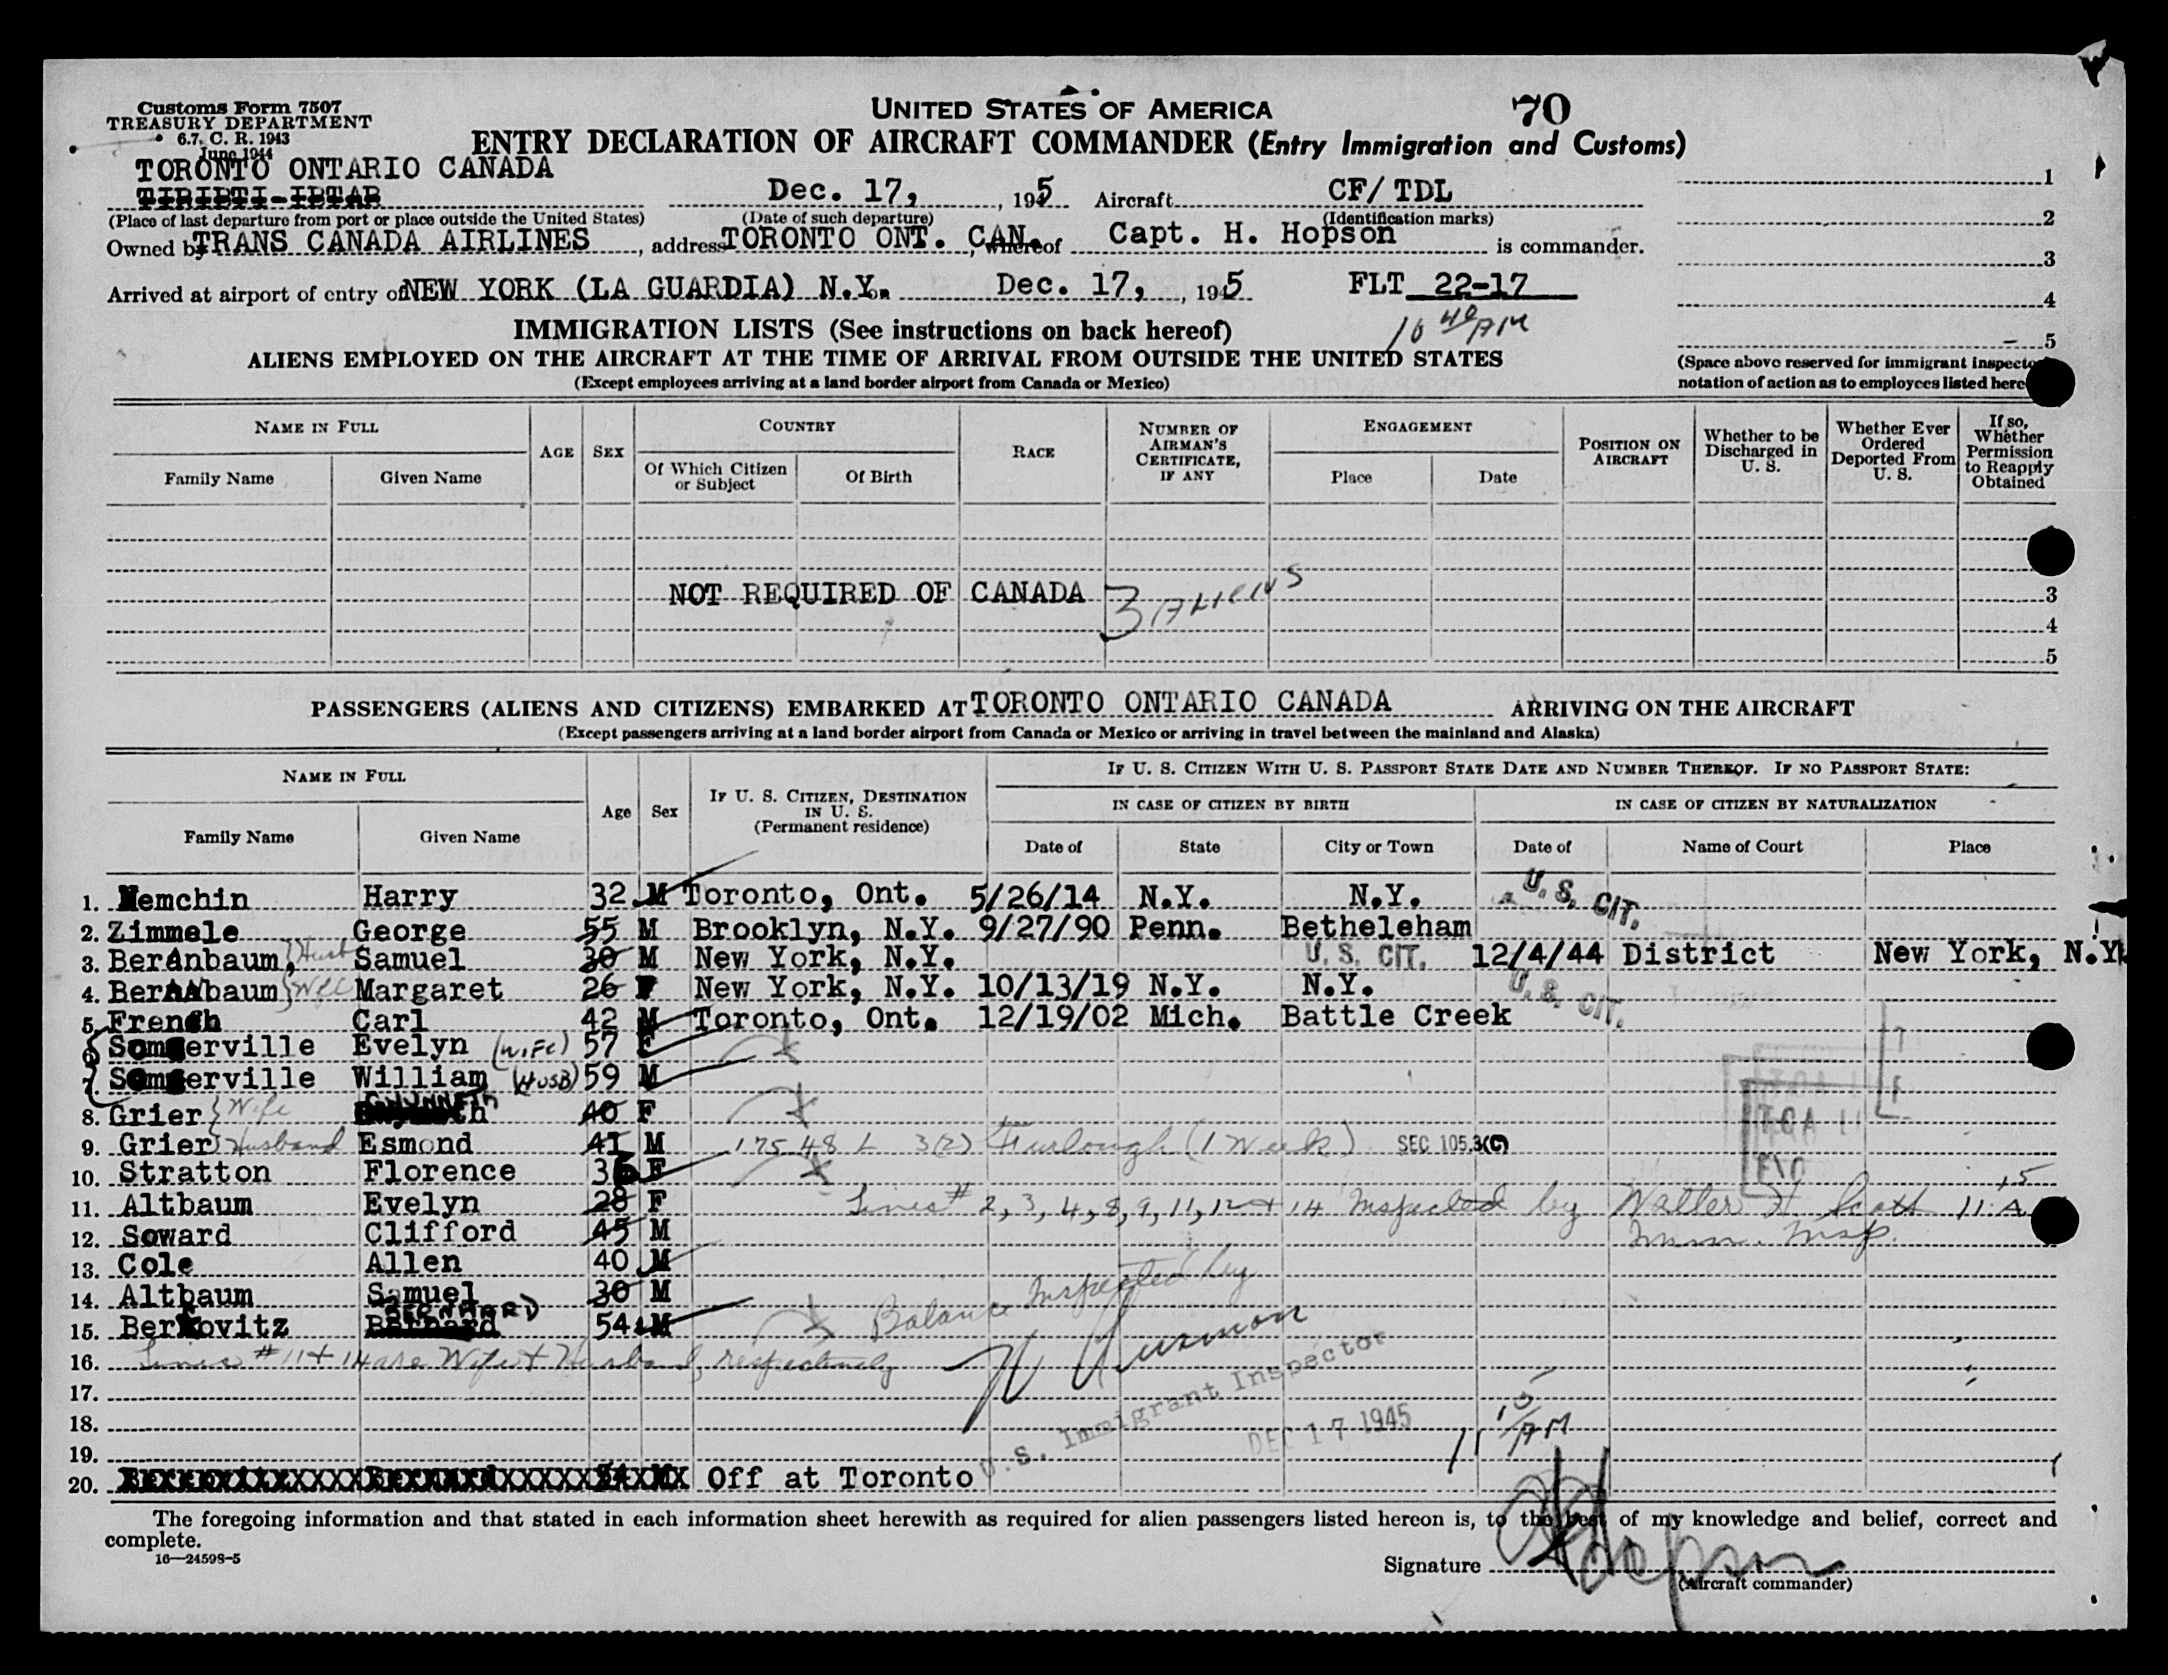 Customs Form 7507
TREASURY DEPARTMENT
6.7, C. R. 1943
June 1944
UNITED STATES OF AMERICA
70
ENTRY DECLARATION OF AIRCRAFT COMMANDER (Entry Immigration and Customs)
TORONTO ONTARIO CANADA
Dec. 17, 1945 Aircraft CF/TDL
(Place of last departure from port or place outside the United States) (Date of such departure) (Identification marks)
Owned by TRANS CANADA AIRLINES, address TORONTO ONT. CAN., whereof Capt. H. Hopson is commander.
Arrived at airport of entry of NEW YORK (LA GUARDIA) N.Y. on Dec. 17, 1945 FLT 22-17
10 40 AM
1
2
3
4
5
(Space above reserved for immigrant inspector
notation of action as to employees listed here
IMMIGRATION LISTS (See instructions on back hereof)
ALIENS EMPLOYED ON THE AIRCRAFT AT THE TIME OF ARRIVAL FROM OUTSIDE THE UNITED STATES
(Except employees arriving at a land border airport from Canada or Mexico)
NAME IN FULL
Family Name Given Name
AGE SEX
COUNTRY
Of Which Citizen or Subject Of Birth
RACE
NUMBER OF AIRMAN'S CERTIFICATE, IF ANY
ENGAGEMENT
Place Date
POSITION ON AIRCRAFT
Whether to be Discharged in U. S.
Whether Ever Ordered Deported From U. S.
If so, Whether Permission to Reapply Obtained
NOT REQUIRED OF CANADA 3 ALIENS 3
4
5
PASSENGERS (ALIENS AND CITIZENS) EMBARKED AT TORONTO ONTARIO CANADA ARRIVING ON THE AIRCRAFT
(Except passengers arriving at a land border airport from Canada or Mexico or arriving in travel between the mainland and Alaska)
NAME IN FULL
Family Name Given Name
Age Sex
IF U. S. CITIZEN, DESTINATION IN U. S.
(Permanent residence)
IF U. S. CITIZEN WITH U. S. PASSPORT STATE DATE AND NUMBER THEREOF. IF NO PASSPORT STATE:
IN CASE OF CITIZEN BY BIRTH IN CASE OF CITIZEN BY NATURALIZATION
Date of State City or Town Date of Name of Court Place
1. Nemchin Harry 32 M Toronto, Ont. 5/26/14 N.Y. N.Y. U. S. CIT.
2. Zimmele George 55 M Brooklyn, N.Y. 9/27/90 Penn. Betheleham
3. Beranbaum, Husb Samuel 30 M New York, N.Y. U. S. CIT. 12/4/44 District New York, N.Y.
4. Beranbaum Wife Margaret 26 F New York, N.Y. 10/13/19 N.Y. N.Y. U. S. CIT.
5. French Carl 42 M Toronto, Ont. 12/19/02 Mich. Battle Creek
6 Somerville Evelyn (Wife) 57 F
7 Somerville William (HUSB) 59 M
8. Grier Wife GWYNNETH 40 F
9. Grier Husband Esmond 41 M 17548 L 3(2) Furlough (1 Week) SEC 105.3(C)
10. Stratton Florence 36 F
11. Altbaum Evelyn 28 F Lines # 2, 3, 4, 8, 9, 11, 12 + 14 Inspected by Walter H. Scott 11 15 A
12. Soward Clifford 45 M Imm. Insp.
13. Cole Allen 40 M
14. Altbaum Samuel 30 M Balance Inspected by
15. Berkovitz BERNARD 54 M
16. Lines # 11 + 14 are Wife + Husband, respectively
U. S. Immigrant Inspector
17.
18. DEC 17 1945 11 15 AM
19.
20. Off at Toronto
The foregoing information and that stated in each information sheet herewith as required for alien passengers listed hereon is, to the best of my knowledge and belief, correct and
complete.
16—24598-5
Signature H Hopson
(Aircraft commander)